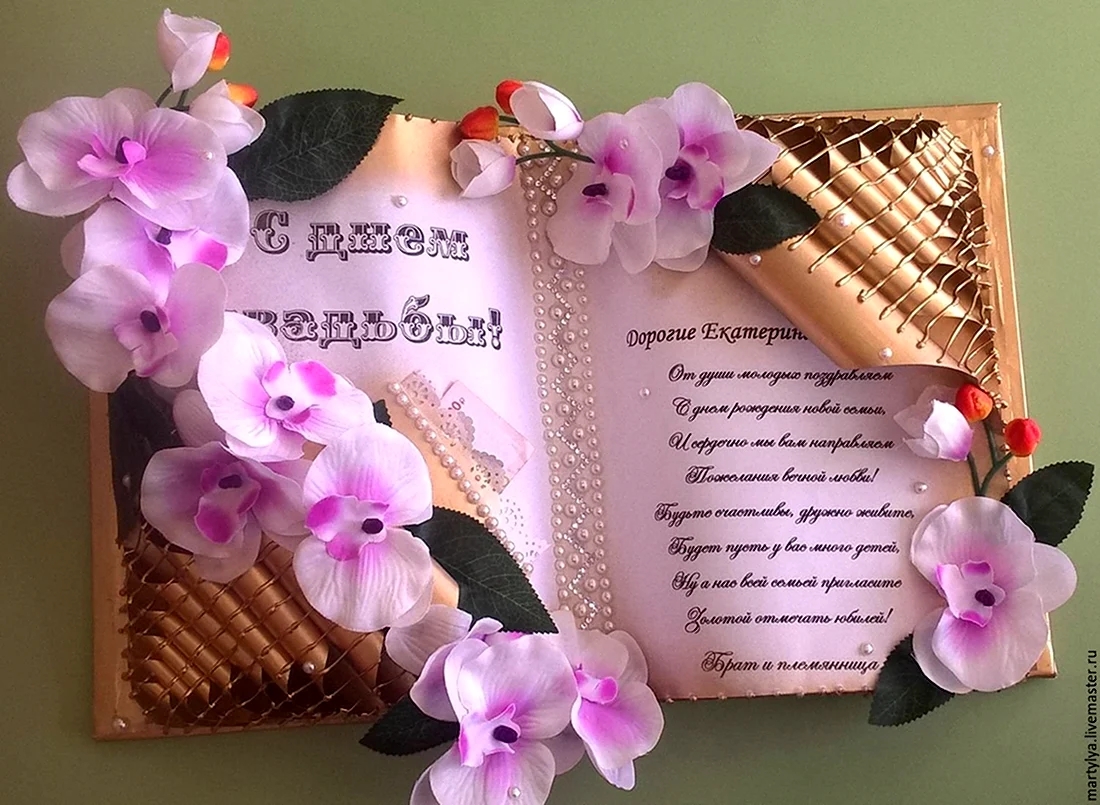 С днем
вадьбы!
Дорогие Екатерин
От души молодых поздравляем
С днем рождения новой семьи,
И сердечно мы вам направляем
Пожелания вечной любви!
Будьте счастливы, дружно живите,
Будет пусть у вас много детей,
Ну а нас всей семьей пригласите
Золотой отмечать юбилей!
Брат и племянница
martylya.livemaster.ru